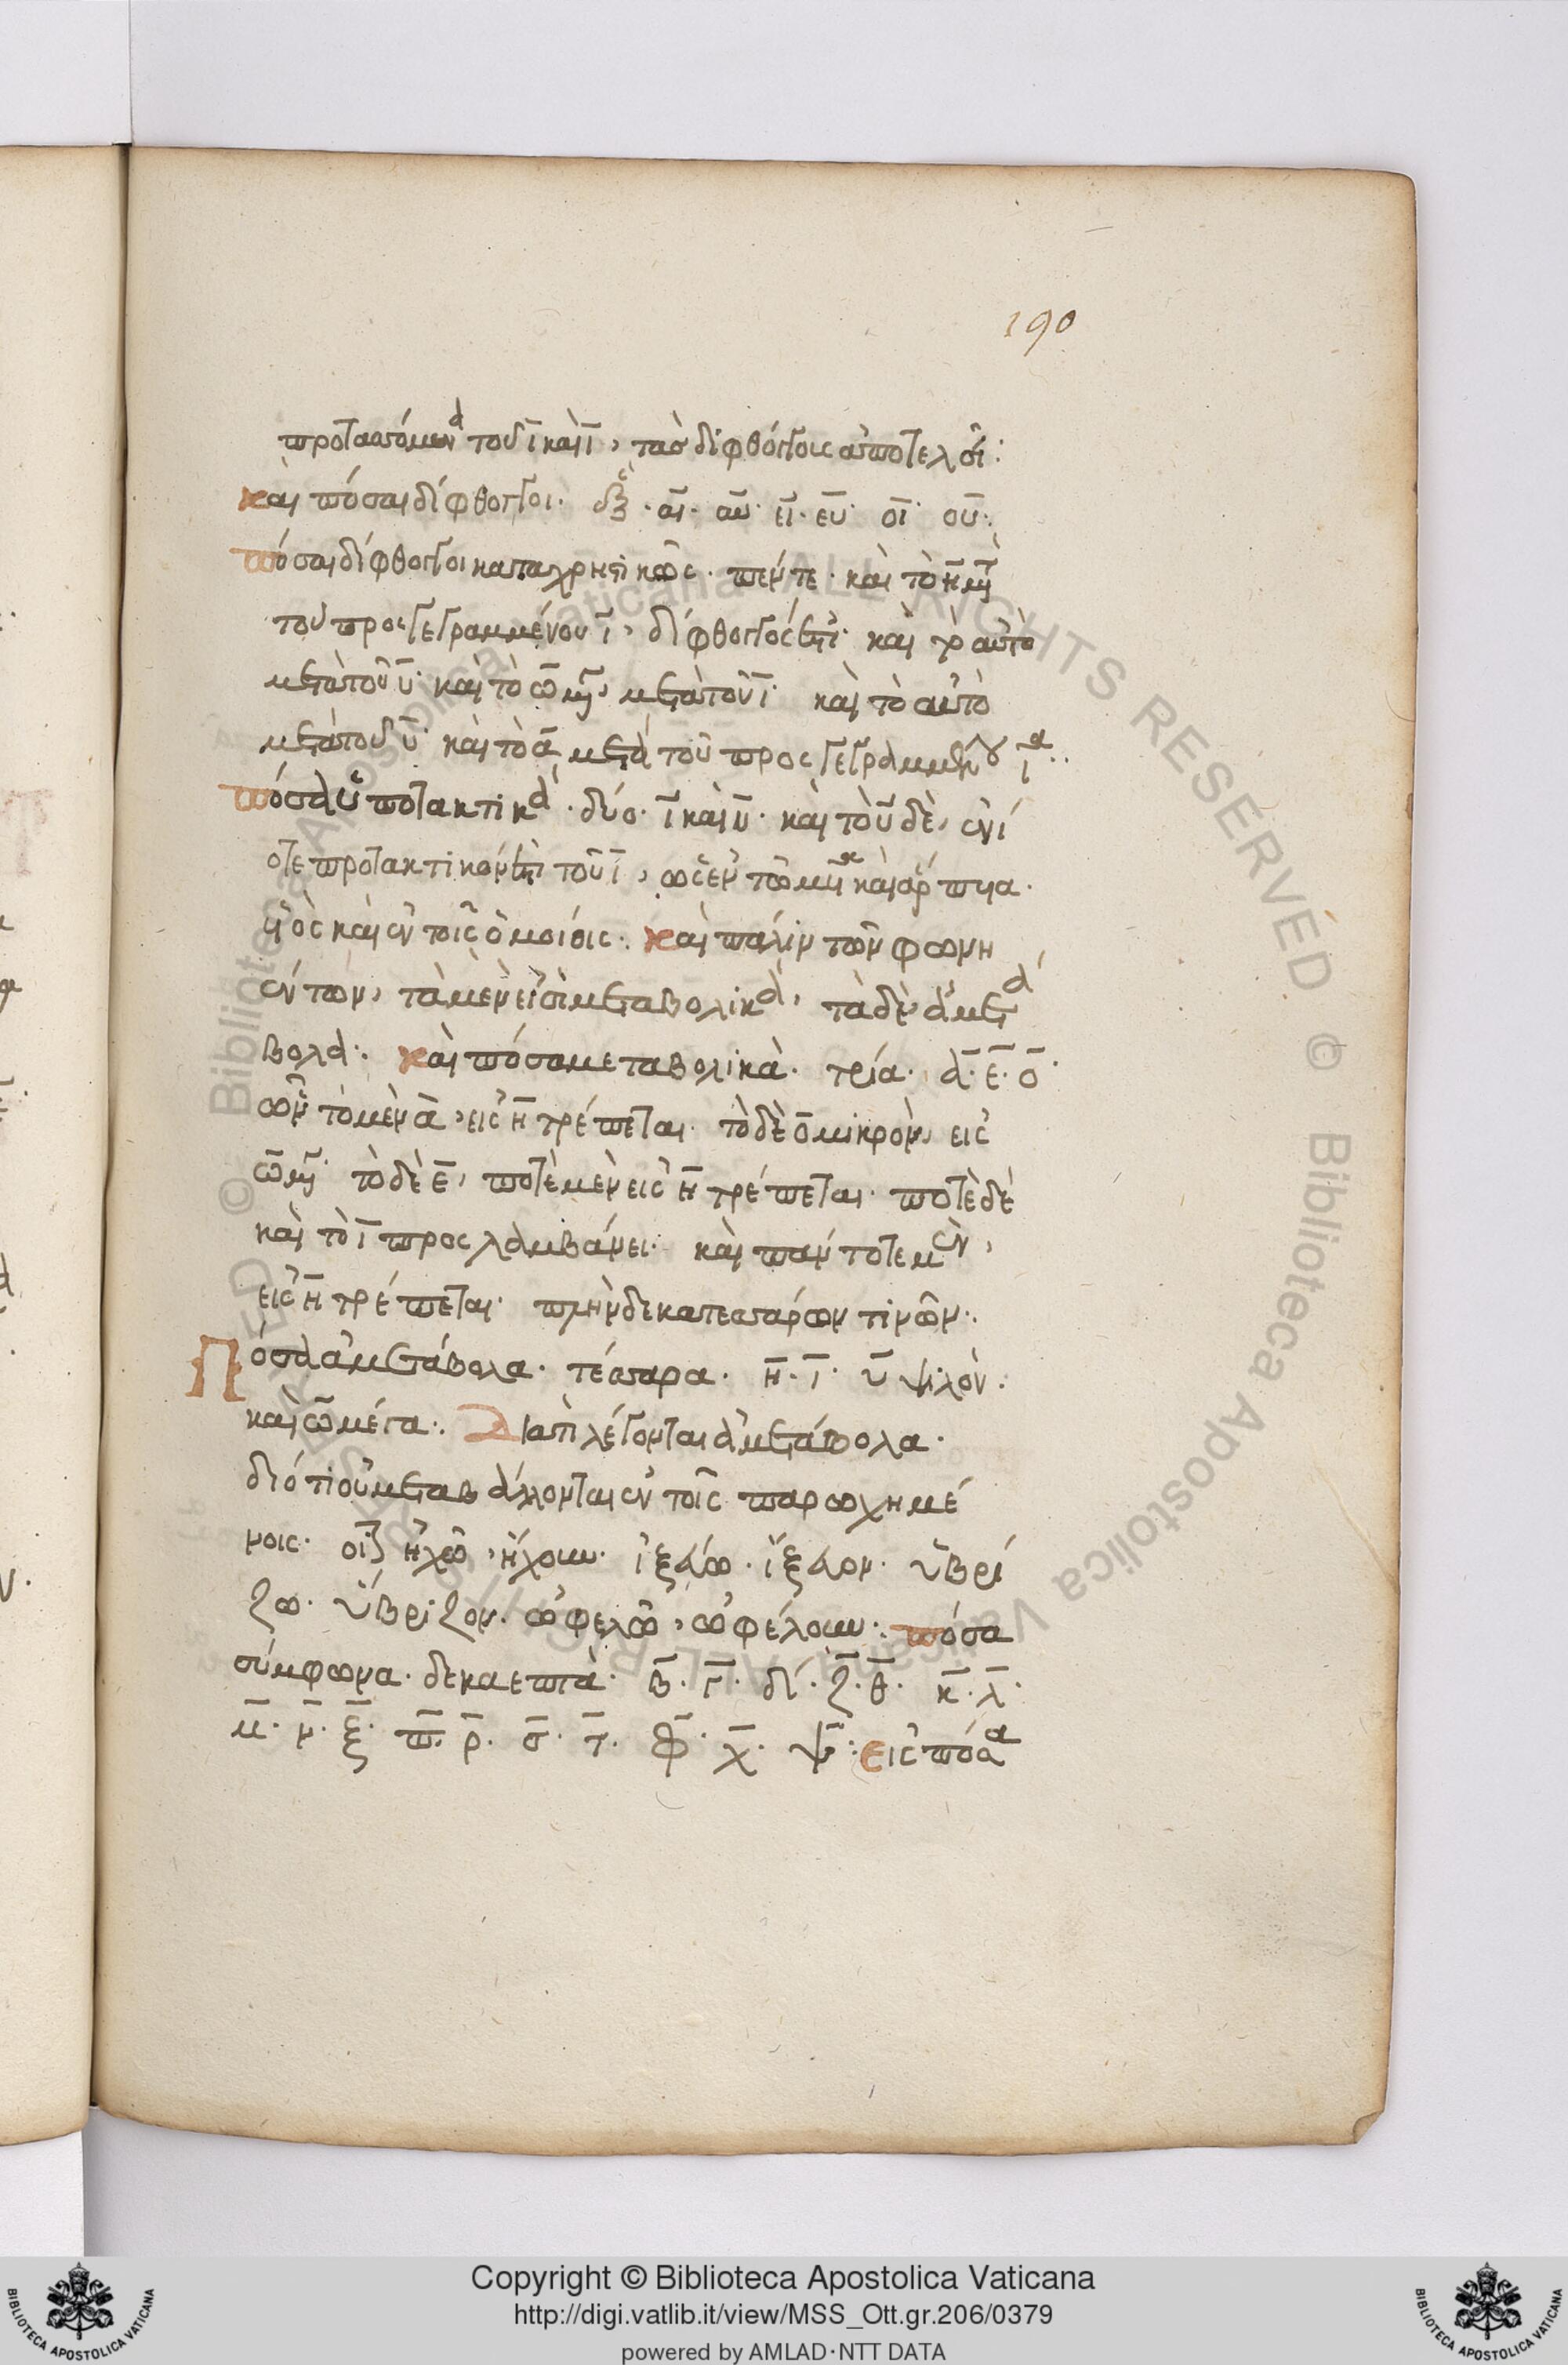 190
προτασσόμενα τοῦ ῑ καὶ ῡ, τὰς διφθόγγους ἀποτελοῦσι:
και πόσαι δίφθογγοι. ἕξ. αι. αυ. ει. ευ. οι. ου:
πόσαι δίφθογγοι καταχρηστικῶς. πέντε. καὶ τὸ η μετὰ
τοῦ προσγεγραμμένου ι, δίφθογγός ἐστι. καὶ τὸ αὐτὸ
μετὰ τοῦ υ. καὶ τὸ ω μέγα, μετὰ τοῦ ι. καὶ τὸ αὐτὸ
μετὰ τοῦ υ. καὶ τὸ α μετὰ τοῦ προσγεγραμμένου ι
πόσα ὑποτακτικά. δύο. ι καὶ υ. καὶ τὸ υ δὲ, ἐνί
οτε προτακτικόν ἐστι τοῦ ι, ὡς ἐν τῶ μυῖα καὶ ἅρπυια.
υἱὸς καὶ ἐν τοῖς ὁμοίοις. καὶ πάλιν τῶν φωνη
έντων, τὰ μὲν εἰσὶ μεταβολικά, τὰ δὲ ἀμετά
βολα. καὶ πόσα μεταβολικὰ. τρία. α. ε. ο.
ὧν τὸ μὲν α, εἰς η τρέπεται. τὸ δὲ ο μικρὸν, εις
ω μέγα. τὸ δὲ ε, ποτὲ μὲν εἰς η τρέπεται. ποτὲ δὲ
καὶ τὸ ι προσλαμβάνει. καὶ πάντοτε μὲν,
εἰς η τρέπεται. πλὴν δεκατεσσάρων τινῶν.
Πόσα ἀμετάβολα. τέσσαρα. η. ι. υ ψιλὸν.
καὶ ω μέγα. Διατί λέγονται ἀμετάβολα.
διότι οὐ μεταβάλλονται ἐν τοῖς παρωχημέ
νοις. οἷον ἠχῶ, ἤχουν. ἰξεύω. ἴξευον. ὑβρί
ζω. ὕβριζον. ὠφελῶ, ὠφέλουν. πόσα
σύμφωνα. δεκαεπτὰ. β. γ. δ. ζ. θ. κ. λ.
μ. ν. ξ. π. ρ. σ. τ. φ. χ. ψ: εἰς πόσα
Copyright © Biblioteca Apostolica Vaticana
http://digi.vatlib.it/view/MSS_Ott.gr.206/0379
powered by AMLAD·NTT DATA